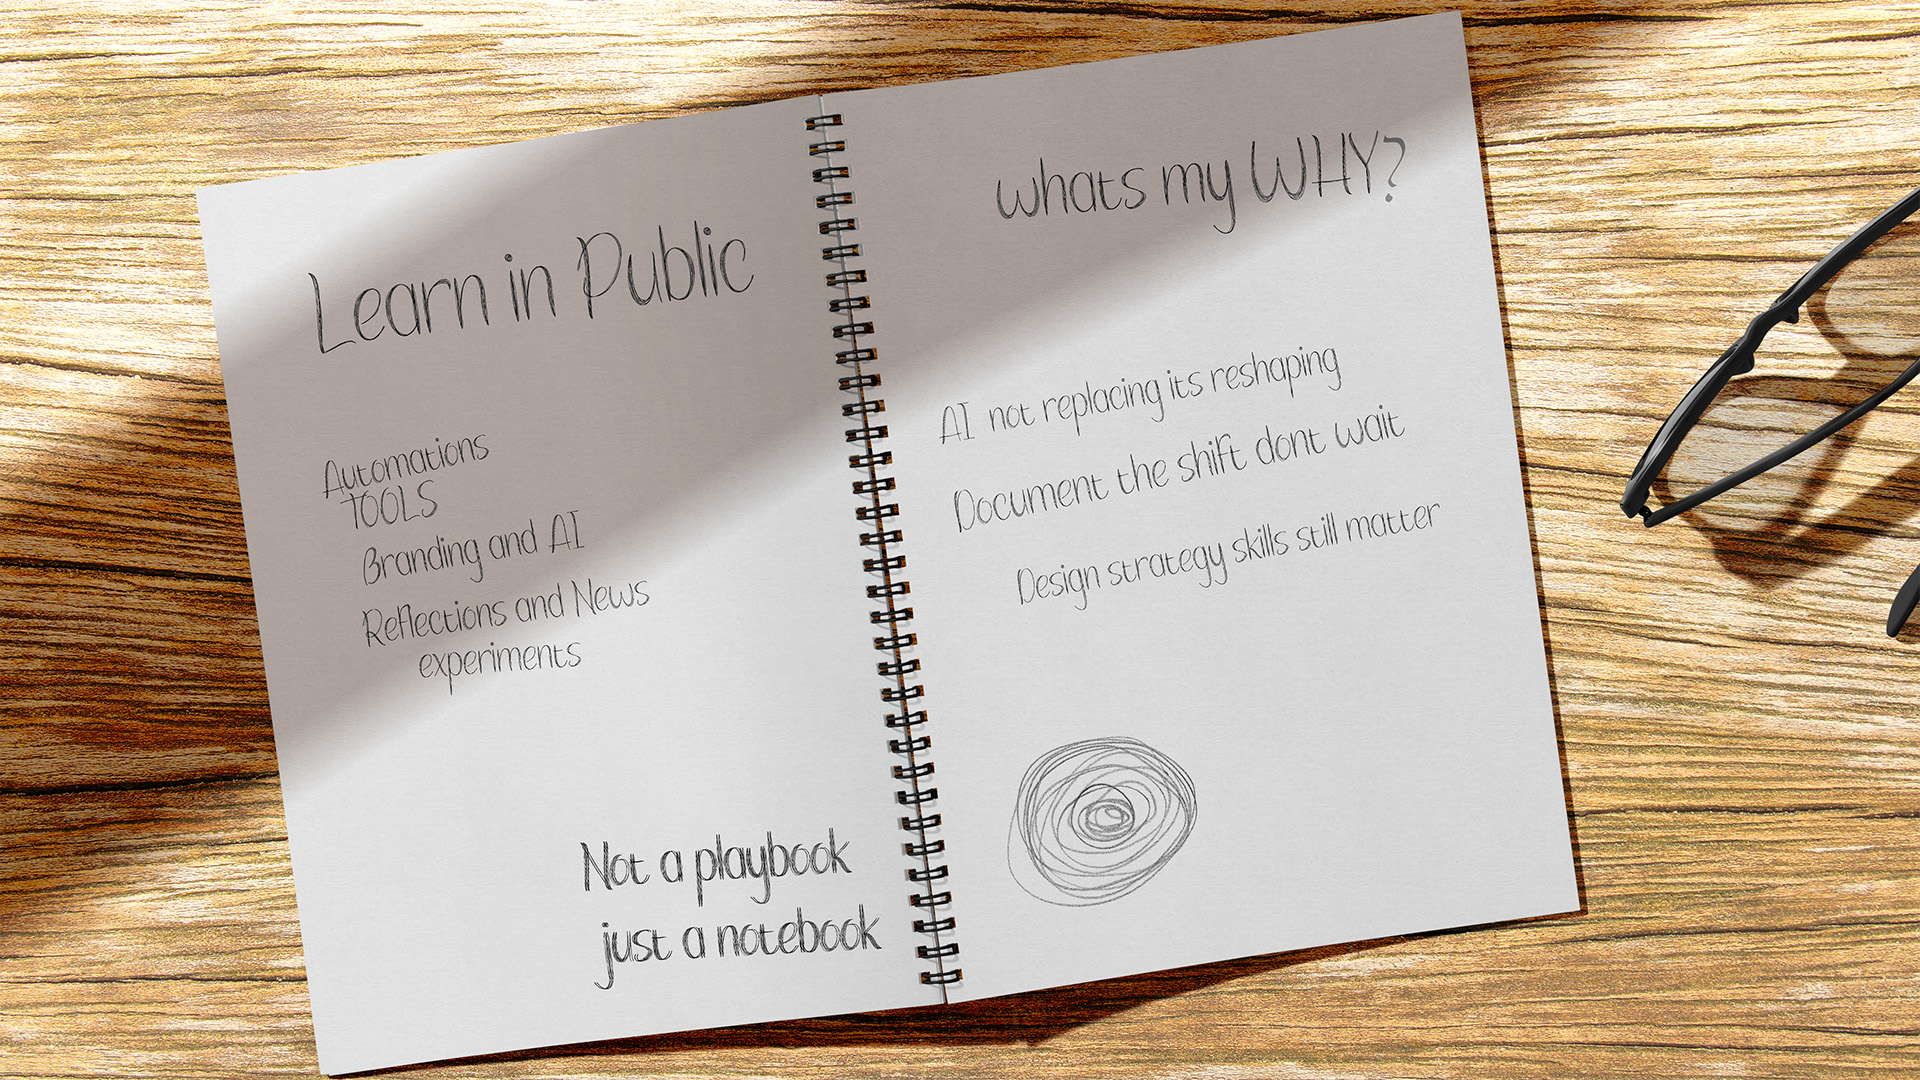 Learn in Public
Automations
TOOLS
Branding and AI
Reflections and News
experiments
Not a playbook
just a notebook
whats my WHY?
AI not replacing its reshaping
Document the shift dont wait
Design strategy skills still matter